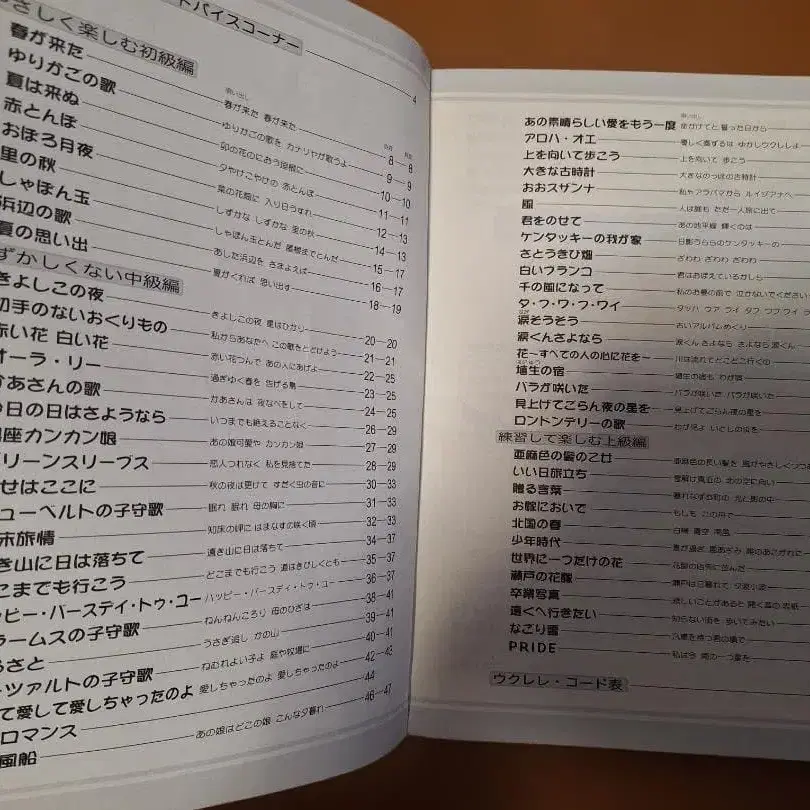 ドバイスコーナー 4
さしく楽しむ初級編 歌い出し
春が来た 春が来た 春が来た 8—8
ゆりかごの歌 ゆりかごの歌を カナリヤが歌うよ 9—9
夏は来ぬ 卯の花のにおう垣根に 10—10
赤とんぼ 夕やけこやけの 赤とんぼ 11—11
おぼろ月夜 菜の花畑に 入り日うすれ 12—13
里の秋 しずかな しずかな 里の秋 14—13
しゃぼん玉 しゃぼん玉とんだ 屋根までとんだ 15—17
浜辺の歌 あした浜辺を さまよえば 16—17
夏の思い出 夏がくれば 思い出す 18—19
ずかしくない中級編
きよしこの夜 きよしこの夜 星はひかり 20—20
切手のないおくりもの 私からあなたへ この歌をとどけよう 21—21
赤い花 白い花 赤い花つんで あの人にあげよ 22—25
オーラ・リー 過ぎゆく春を 告げる鳥 23—25
かあさんの歌 かあさんは 夜なべをして 24—25
今日の日はさようなら いつまでも絶えることなく 26—29
銀座カンカン娘 あの娘可愛や カンカン娘 27—29
リーンスリーブス 恋人つれなく 私を見捨てた 28—29
せはここに 秋の夜は更けて すだく虫の音に 30—33
ューベルトの子守歌 眠れ 眠れ 母の胸に 31—33
床旅情 知床の岬に はまなすの咲く頃 32—33
き山に日は落ちて 遠き山に日は落ちて 34—37
こまでも行こう どこまでも行こう 道はきびしくとも 35—37
ッピー・バースデイ・トゥ・ユー ハッピー・バースデイ・トゥ・ユー 36—37
ラームスの子守歌 ねんねんころり 母のひざは 38—41
るさと うさぎ追し かの山 39—41
ーツァルトの子守歌 ねむれよい子よ 庭や牧場に 40—41
て愛して愛しちゃったのよ 愛しちゃったのよ 愛しちゃったのよ 42—43
ロマンス 44
風船 あの娘はどこの娘 こんな夕暮れ 46—47
歌い出し
あの素晴らしい愛をもう一度 命かけてと 誓った日から
アロハ・オエ 優しく奏ずるは ゆかしウクレレよ
上を向いて歩こう 上を向いて 歩こう
大きな古時計 大きなのっぽの古時計
おおスザンナ 私ゃアラバマから ルイジアナへ
風 人は誰も ただ一人旅に出て
君をのせて あの地平線 輝くのは
ケンタッキーの我が家 日影うららのケンタッキーの
さとうきび畑 ざわわ ざわわ ざわわ
白いブランコ 君はおぼえているかしら
千の風になって 私のお墓の前で 泣かないでください
タ・フ・ワ・フ・ワイ タッハ ウア ライ
涙そうそう 古いアルバムめくり
涙くんさよなら 涙くん さよなら さよなら 涙くん
花～すべての人の心に花を～ 川は流れてどこどこ行くの
埴生の宿 埴生の宿も わが宿
バラが咲いた バラが咲いた バラが咲いた
見上げてごらん夜の星を 見上げてごらん夜の星を
ロンドンデリーの歌 わが子よ いとしの汝を
練習して楽しむ上級編
亜麻色の髪の乙女 亜麻色の長い髪を 風がやさしくつつむ
いい日旅立ち 雪解け真近の 北の空に向い
贈る言葉 暮れなずむ町の 光と影の中
お嫁において もしも この舟で
北国の春 白樺 青空 南風
少年時代 夏が過ぎ 風あざみ
世界に一つだけの花 花屋の店先に並んだ
瀬戸の花嫁 瀬戸は日暮れて 夕波小波
卒業写真 悲しいことがあると 開く革の表紙
遠くへ行きたい 知らない街を 歩いてみたい
なごり雪 汽車を待つ君の横で
PRIDE 私は今 南の一つ星を
ウクレレ・コード表